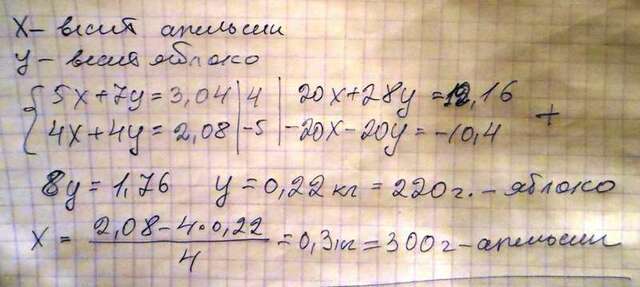 X - весит апельсин
y - весит яблоко
{ 5x+7y = 3,04 | 4 | 20x+28y = 12,16
4x+4y = 2,08 | -5 | -20x-20y = -10,4 +
8y = 1,76 y = 0,22 кг = 220 г. - яблоко
X = (2,08 - 4·0,22) / 4 = 0,3 кг = 300 г - апельсин